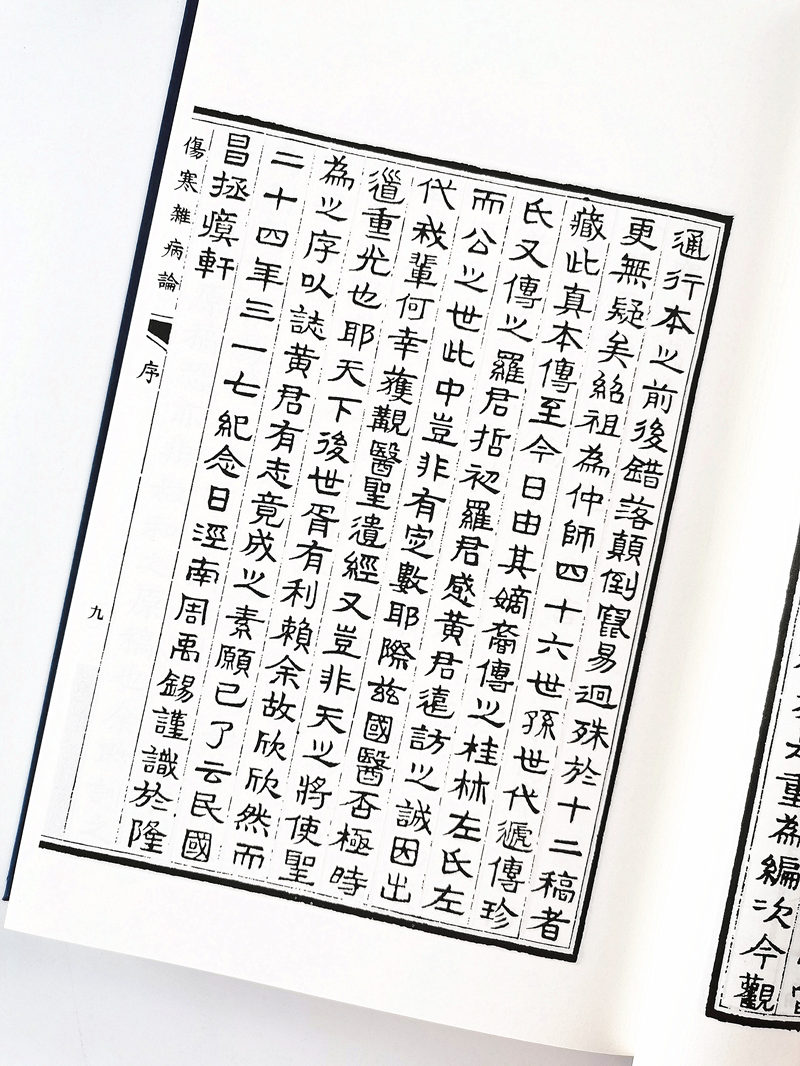 通行本之前後錯落顛倒竄易迥殊於十二稿者
更無疑矣紹祖為仲師四十六世孫世代遞傳珍
藏此真本傳至今日由其嫡裔傳之桂林左氏左
氏又傳之羅君哲初羅君感黄君遠訪之誠因出
而公之世此中豈非有定數耶際兹國醫否極時
代我輩何幸獲觀醫聖遺經又豈非天之將使聖
道重光也耶天下後世胥有利賴余故欣欣然而
為之序以誌黄君有志竟成之素願已了云民國
二十四年三一七紀念日涇南周禹錫謹識於隆
昌拯瘼軒
傷寒雜病論
序
九
重為編次今觀